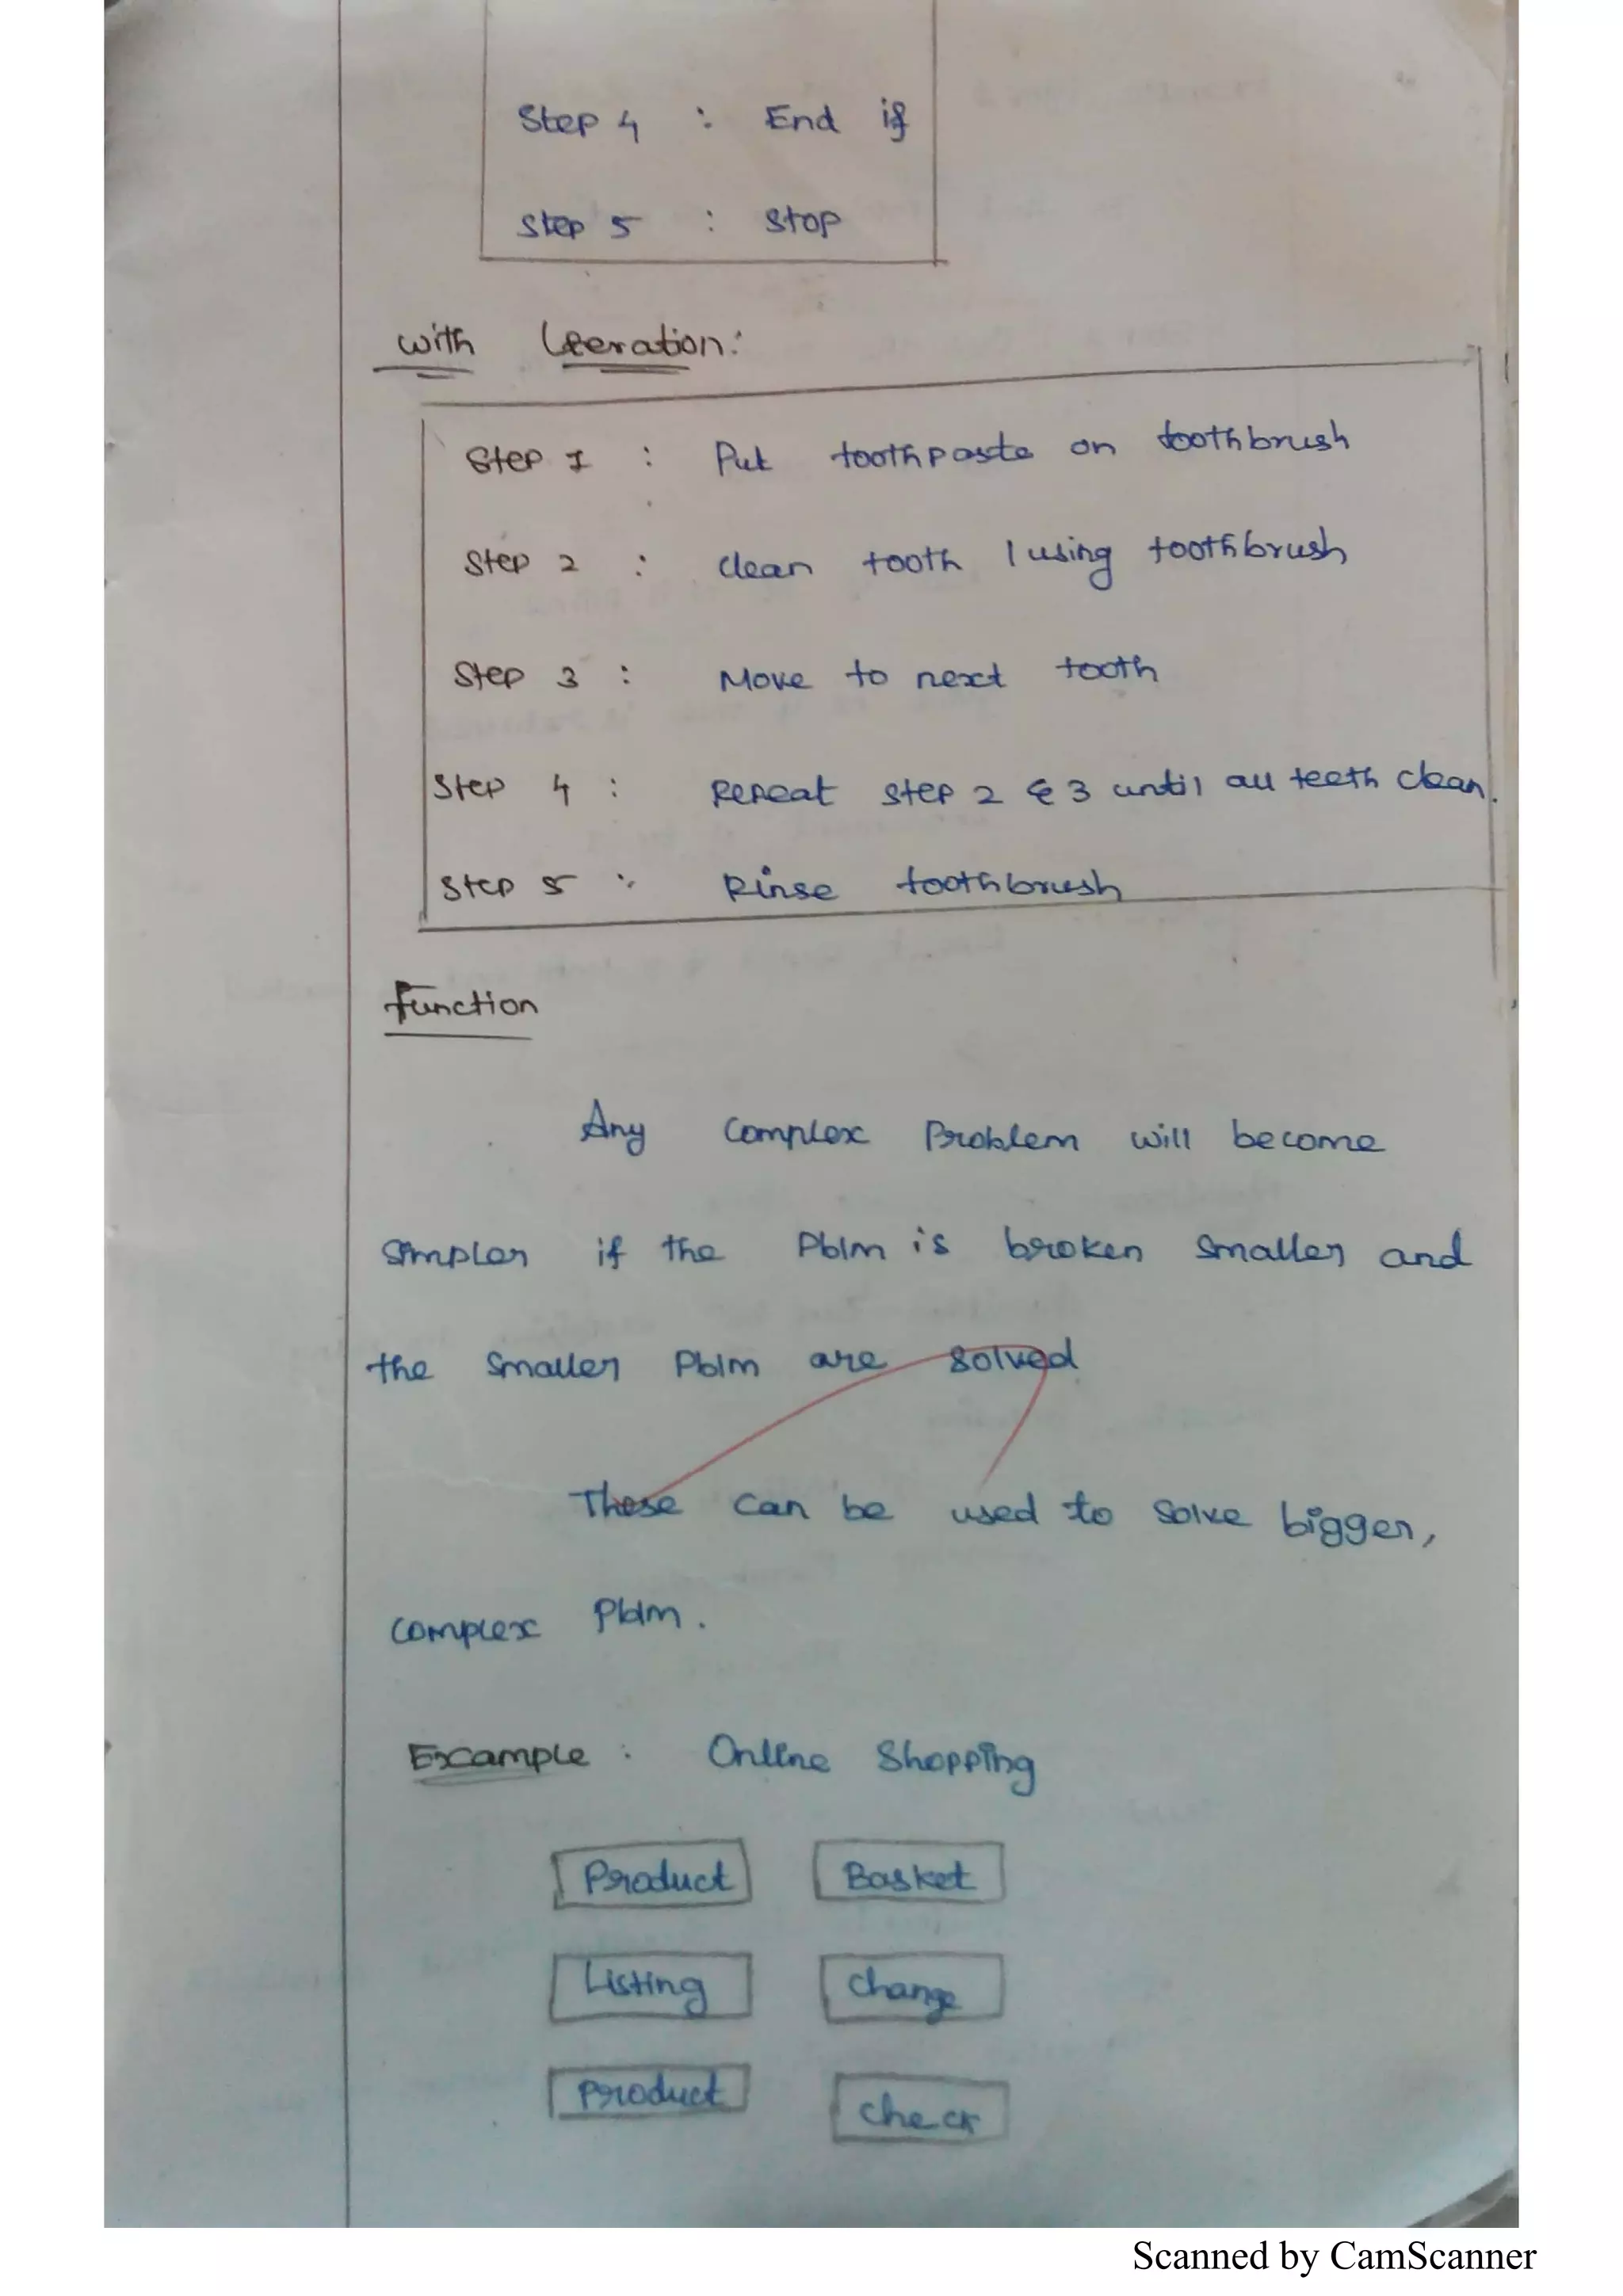 Step 4 : End if
Step 5 : Stop
with Iteration:
Step 1 : Put toothpaste on toothbrush
Step 2 : clean tooth 1 using toothbrush
Step 3 : Move to next tooth
Step 4 : Repeat step 2 & 3 until all teeth clean.
Step 5 : Rinse toothbrush
Function
Any Complex Problem will become
Simpler if the Pblm is broken Smaller and
the Smaller Pblm are Solved.
These can be used to Solve bigger,
complex Pblm.
Example : Online Shopping
Product Basket
Listing change
Product check
Scanned by CamScanner